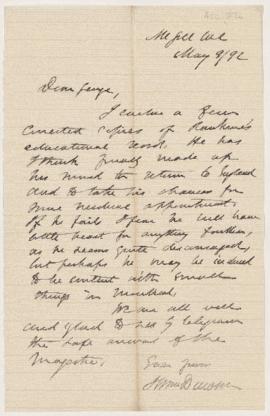 McGill Col
May 9/92
Dear George,
I enclose a few
corrected copies of Rankine's
educational record. He has
I think finally made up
his mind to return to England
and to take his chances for
some medical appointment.
If he fails I fear he will have
little heart for anything further,
as he seems quite discouraged,
but perhaps he may be induced
to be content with small
things in Montreal.
We are all well
and glad to see by telegram
the safe arrival of the
Ever yours